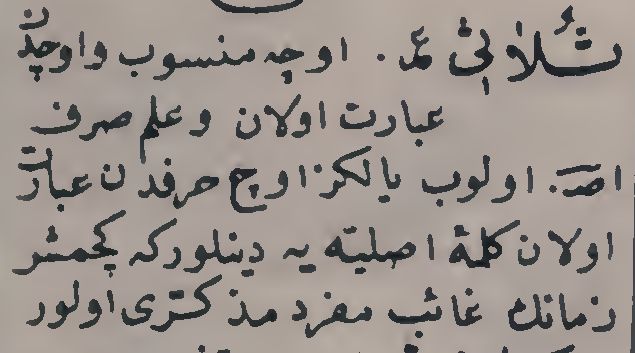 ثُلاثیّ عمـ . اوچه منسوب واوچدن
عبارت اولان وعلم صرف
اصـ . اولوب یالکز اوچ حرفدن عبارت
اولان کلمهٔ اصلیته یه دینلورکه کچمش
زمانك غائب مفرد مذکری اولور